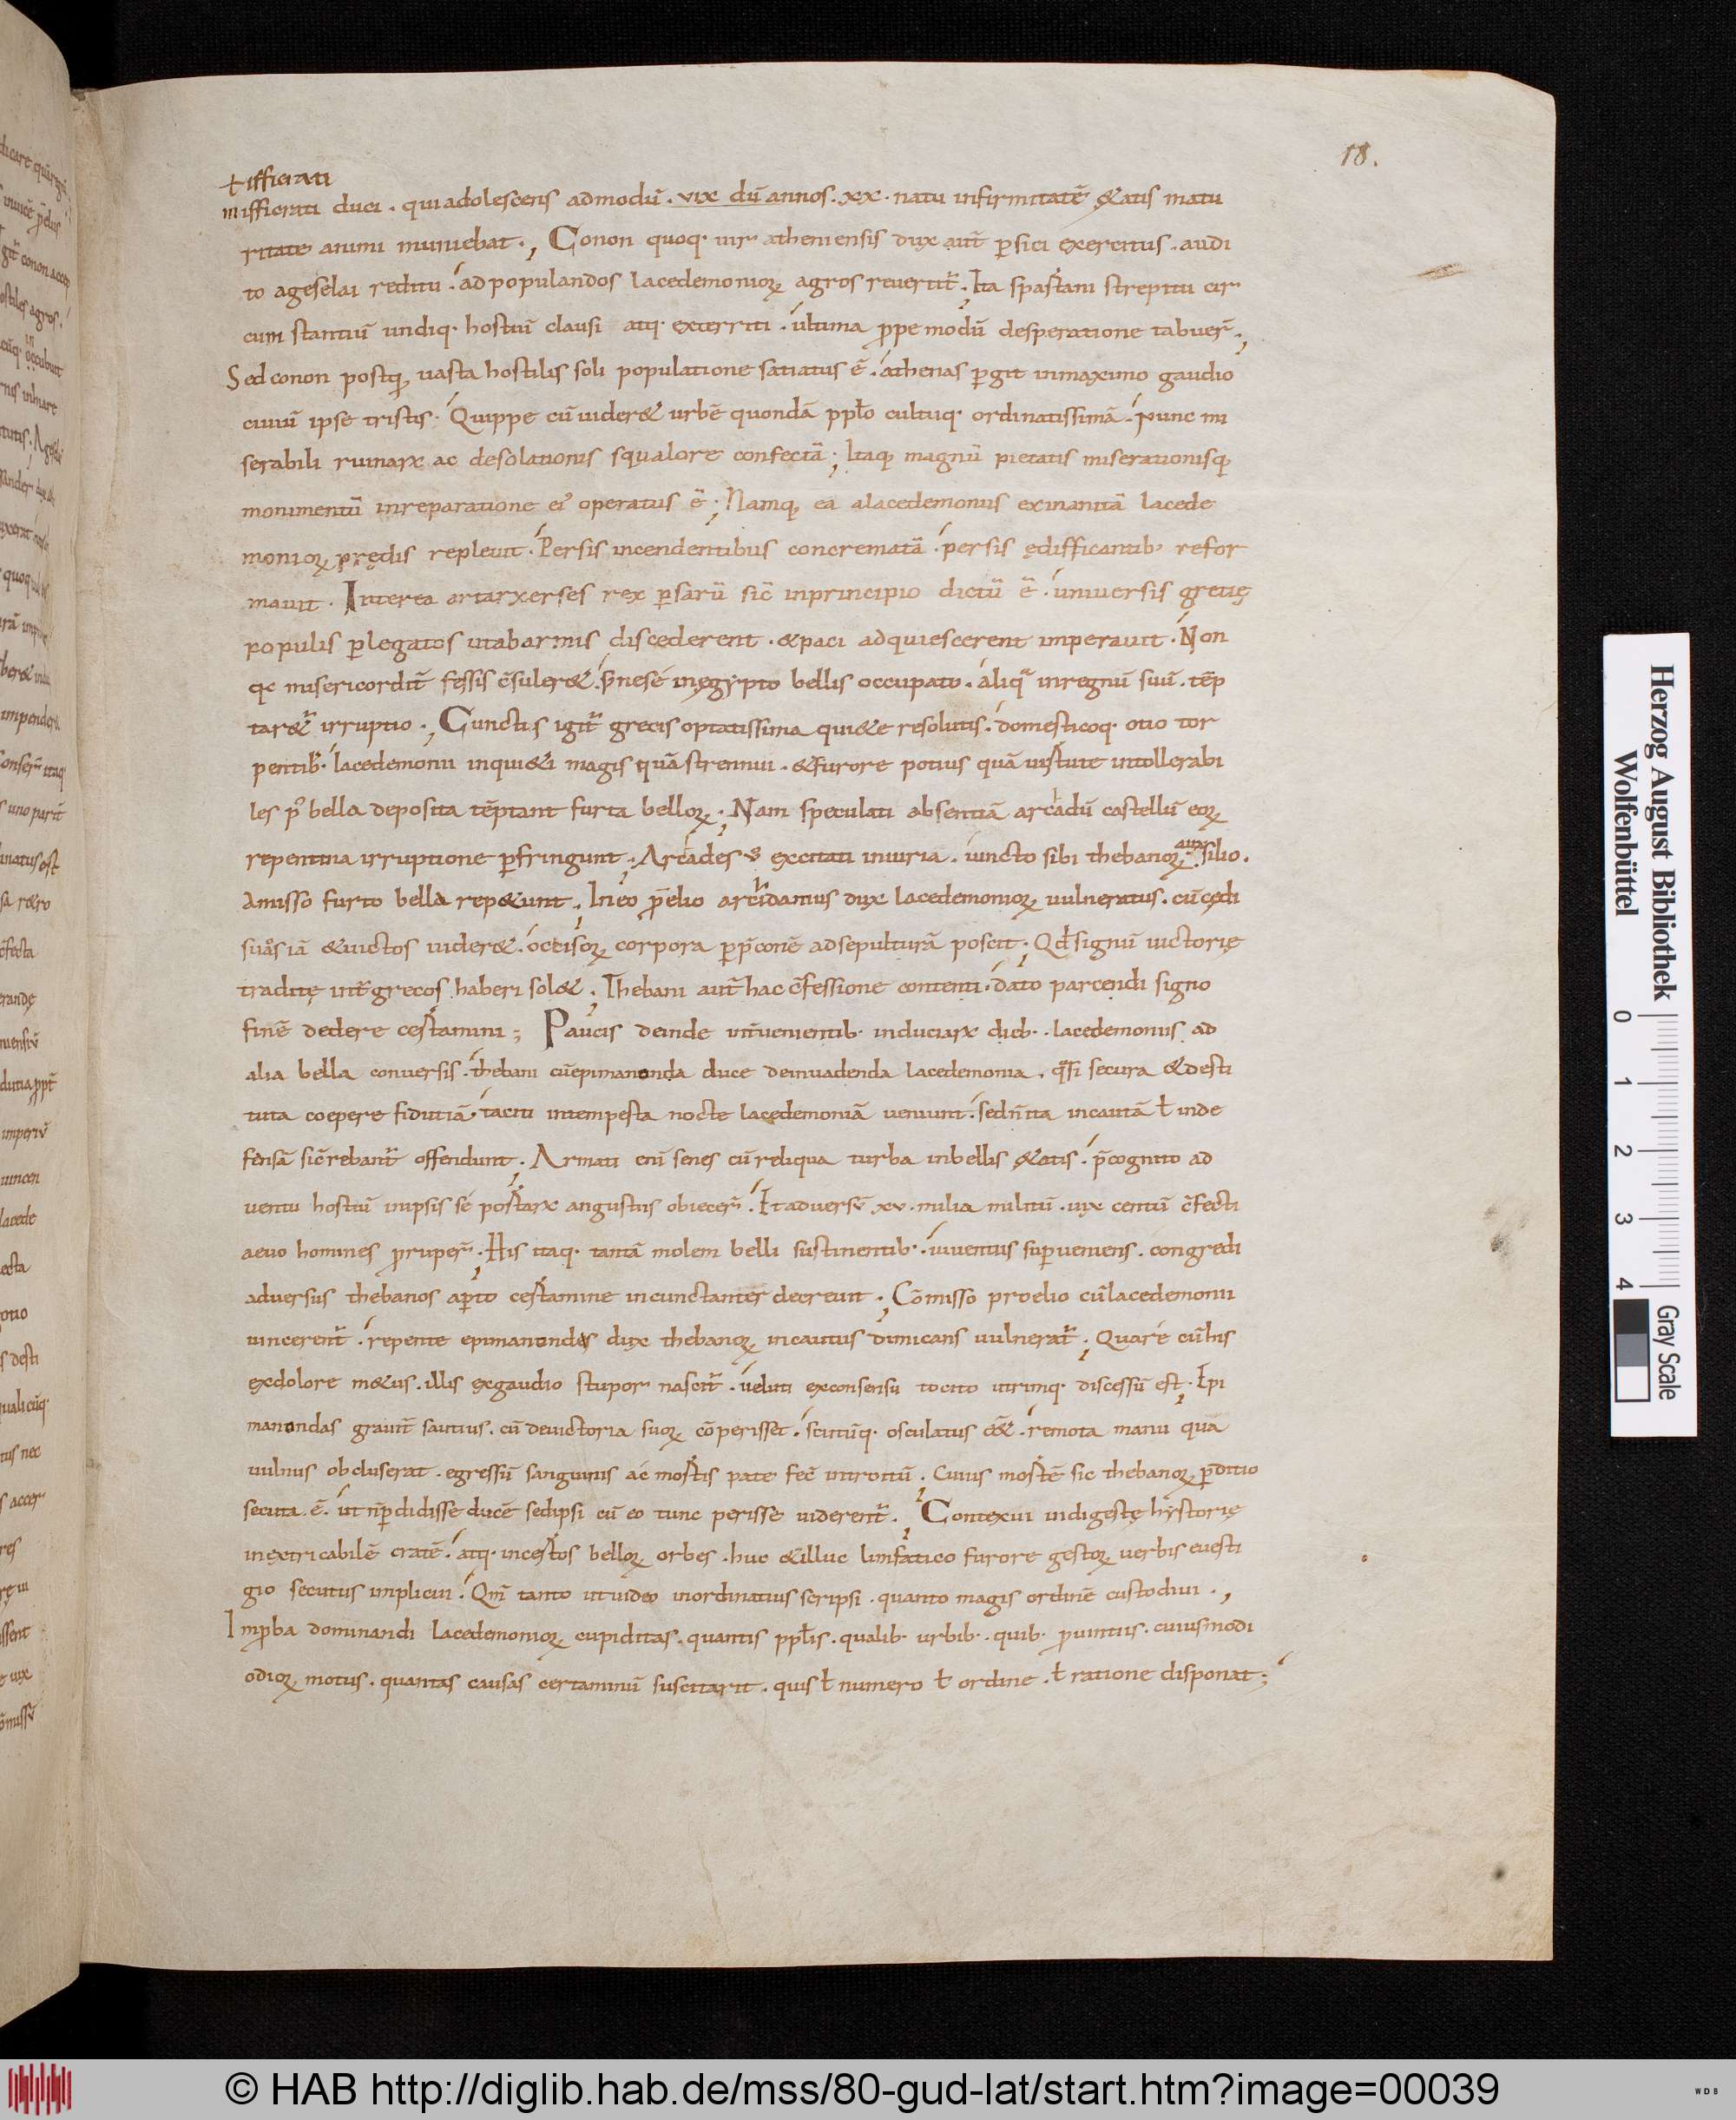 18.
+ ifficrati
mifficrati duci . qui adolescens admodū . vix dū annos . xx . natu infirmitatē ętatis matu
ritate animi muniebat ., Conon quoq· uir atheniensis dux aut̄ ꝑsici exercitus . audi
to ageselai reditu . ad populandos lacedemonioꝝ agros reuertit̄ ., Ita spartani strepitu cir
cum stantiū undiq· hostiū clausi atq· exterriti . ultima ꝓpe modū desperatione tabuer̄ .,
Sed conon postq̄ uasta hostilis soli populatione satiatus ē . athenas ꝑgit in maximo gaudio
ciuiū ipse tristis . Quippe cū uider& urbē quondā ppło cultuq· ordinatissimā . nunc mi
serabili ruinarx ac desolationis squalore confectā ; Itaq; magnū pietatis miserationisq;
monimentū in reparatione ei' operatus ē ; Namq; ea a lacedemoniis exinanitā lacede
monioꝝ prędis repleuit . Persis incendentibus concrematā . persis ędifficantib' refor
mauit . Interea artarxerses rex ꝑsarū sic̄ in principio dictū ē . uniuersis gretię
populis ꝑ legatos ut ab armis discederent . & paci adquiescerent imperauit . Non
qc misericordit̄ fessis c̄suler& . s̄ ne sé in ęgypto bellis occupato . aliqᵃ in regnū suū . tēp
tar&̄ irruptio ., Cunctis igit̄ grecis optatissima qui&e resolutis . domesticoq· otio tor
pentib· . lacedemonii inqui&i magis quā strennui . & furore potius quā uirtute intollerabi
les p' bella deposita tēptant furta belloꝝ ., Nam speculati absentiā arcadū castellū eoꝝ
repentina irruptione ꝑfringunt ., Arcades v̊ excitati iniuria . iuncto sibi thebanoꝝ auxsilio .
Amisso furto bella rep&unt ., In eo p̄elio archidamus dux lacedemonioꝝ uulneratus . cū cędi
suos iā & uictos uider& . occisoꝝ corpora ꝑ p̄conē ad sepulturā poscit ., Qđ signū uictorię
traditę int̄ grecos haberi sol& ., Thebani aut̄ hac c̄fessione contenti . dato parcendi signo
finē dedere certamini ; Paucis deinde int̄uenientib· induciarx dieb· . lacedemoniis ad
alia bella conuersis . thebani cū epimanonda duce de inuadenda lacedemonia . qᵃsi secura & desti
tuta coepere fidutiā . taciti intempesta nocte lacedemoniā ueniunt . sed n̄ ita incautā ł inde
fensā sic̄ rebant̄ offendunt ., Armati eni senes cū reliqua turba inbellis ętatis . p̄cognito ad
uentu hostiū in ipsis sé portarx angustiis obiecer̄ . Et aduersū xv . milia militū . uix centū c̄fecti
aeuo homines ꝓruper̄ ., His itaq· tantā molem belli sustinentib· . iuuentus suꝑueniens . congredi
aduersus thebanos aꝑto certamine incunctanter decreuit ., Cōmisso proelio cū lacedemonii
uincerent̄ . repente epimanondes dux thebanoꝝ incautus dimicans uulnerat̄ ., Quare cū his
ex dolore m&us . illis ex gaudio stupor nascit̄ . ueluti ex consensu tocito utrimq· discessū est ., Epi
manondas grauit̄ sautius . cū de uictoria suoꝝ cōperisset . scutūq· osculatus ē&̄ . remota manu qua
uulnus obcluserat . egressū sanguinis ac mortis pate fec̄ introitū ., Cuius mortē sic thebanoꝝ ꝑditio
secuta . ē . ut n̄ ꝑdidisse ducē sed ipsi cū eo tunc perisse uiderent̄ ., Contexui indigestę hystorię
inextricabilē cratē . atq· incertos belloꝝ orbes . huc & illuc limfatico furore gestoꝝ uerbis euesti
gio secutus implicui . Qm̄ tanto ut uideo inordinatius scripsi . quanto magis ordinē custodiui .,
Imꝓba dominandi lacedemonioꝝ cupiditas . quantis ppłis . qualib· urbib· . quib· ꝓuintiis . cuiusmodi
odioꝝ motus . quantas causas certaminū suscitarit . quis ł numero ł ordine . ł ratione disponat ;
Herzog August Bibliothek
Wolfenbüttel
0 1 2 3 4
Gray Scale
© HAB http://diglib.hab.de/mss/80-gud-lat/start.htm?image=00039
WDB